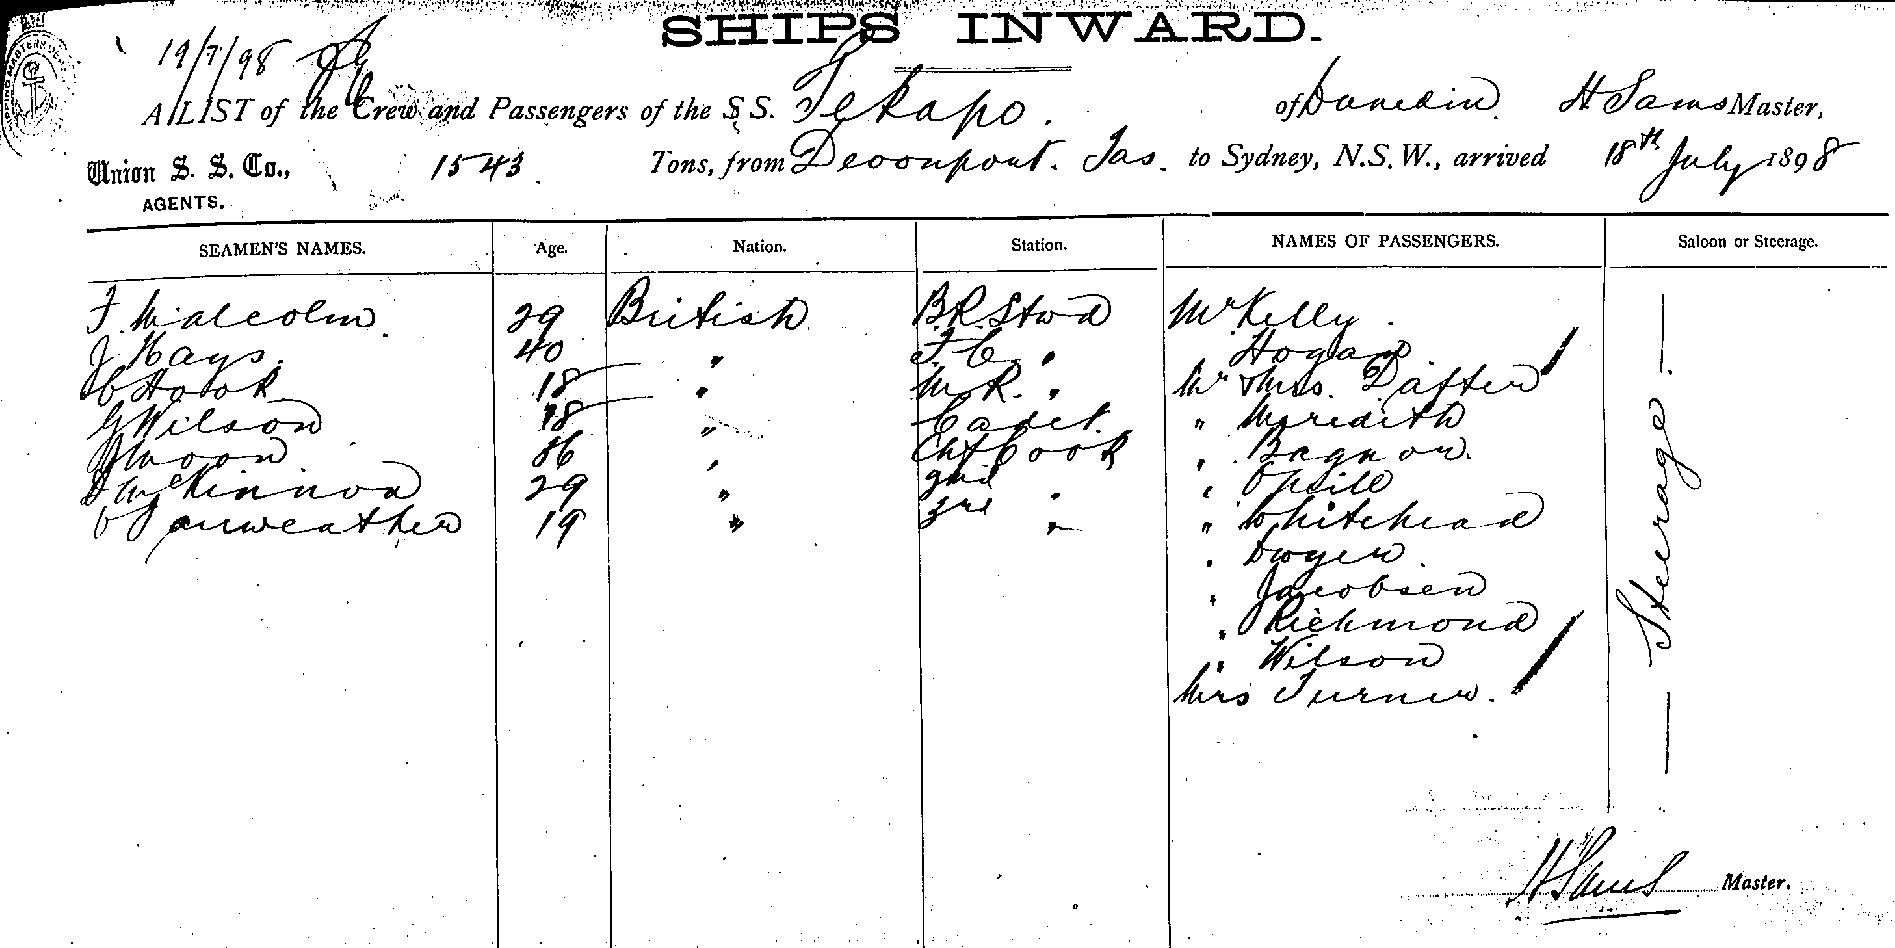 SHIPS INWARD.
19/7/98
A LIST of the Crew and Passengers of the S.S. Tekapo. of Dunedin. H Sams Master,
Union S. S. Co., 1543 Tons, from Devonport. Tas. to Sydney, N.S.W., arrived 18th July 1898
AGENTS.
SEAMEN'S NAMES. Age. Nation. Station. NAMES OF PASSENGERS. Saloon or Steerage.
F. Malcolm 29 British B.R. Stwd Mr Kelly.
J Hays. 40 " F.C. " " Hogan.
C Hook 18 " M.R. " Mr & Mrs. Dafter
G Wilson 18 " Cadet. " Meredith
J Moon 36 " Chf Cook " Bagnor.
McKinnon 29 " 2nd " "
19 " 3rd " " Whitehead
" Dwyer.
" Jacobsen
" Richmond
" Wilson
Mrs Turner.
— Steerage —
H Sams Master.